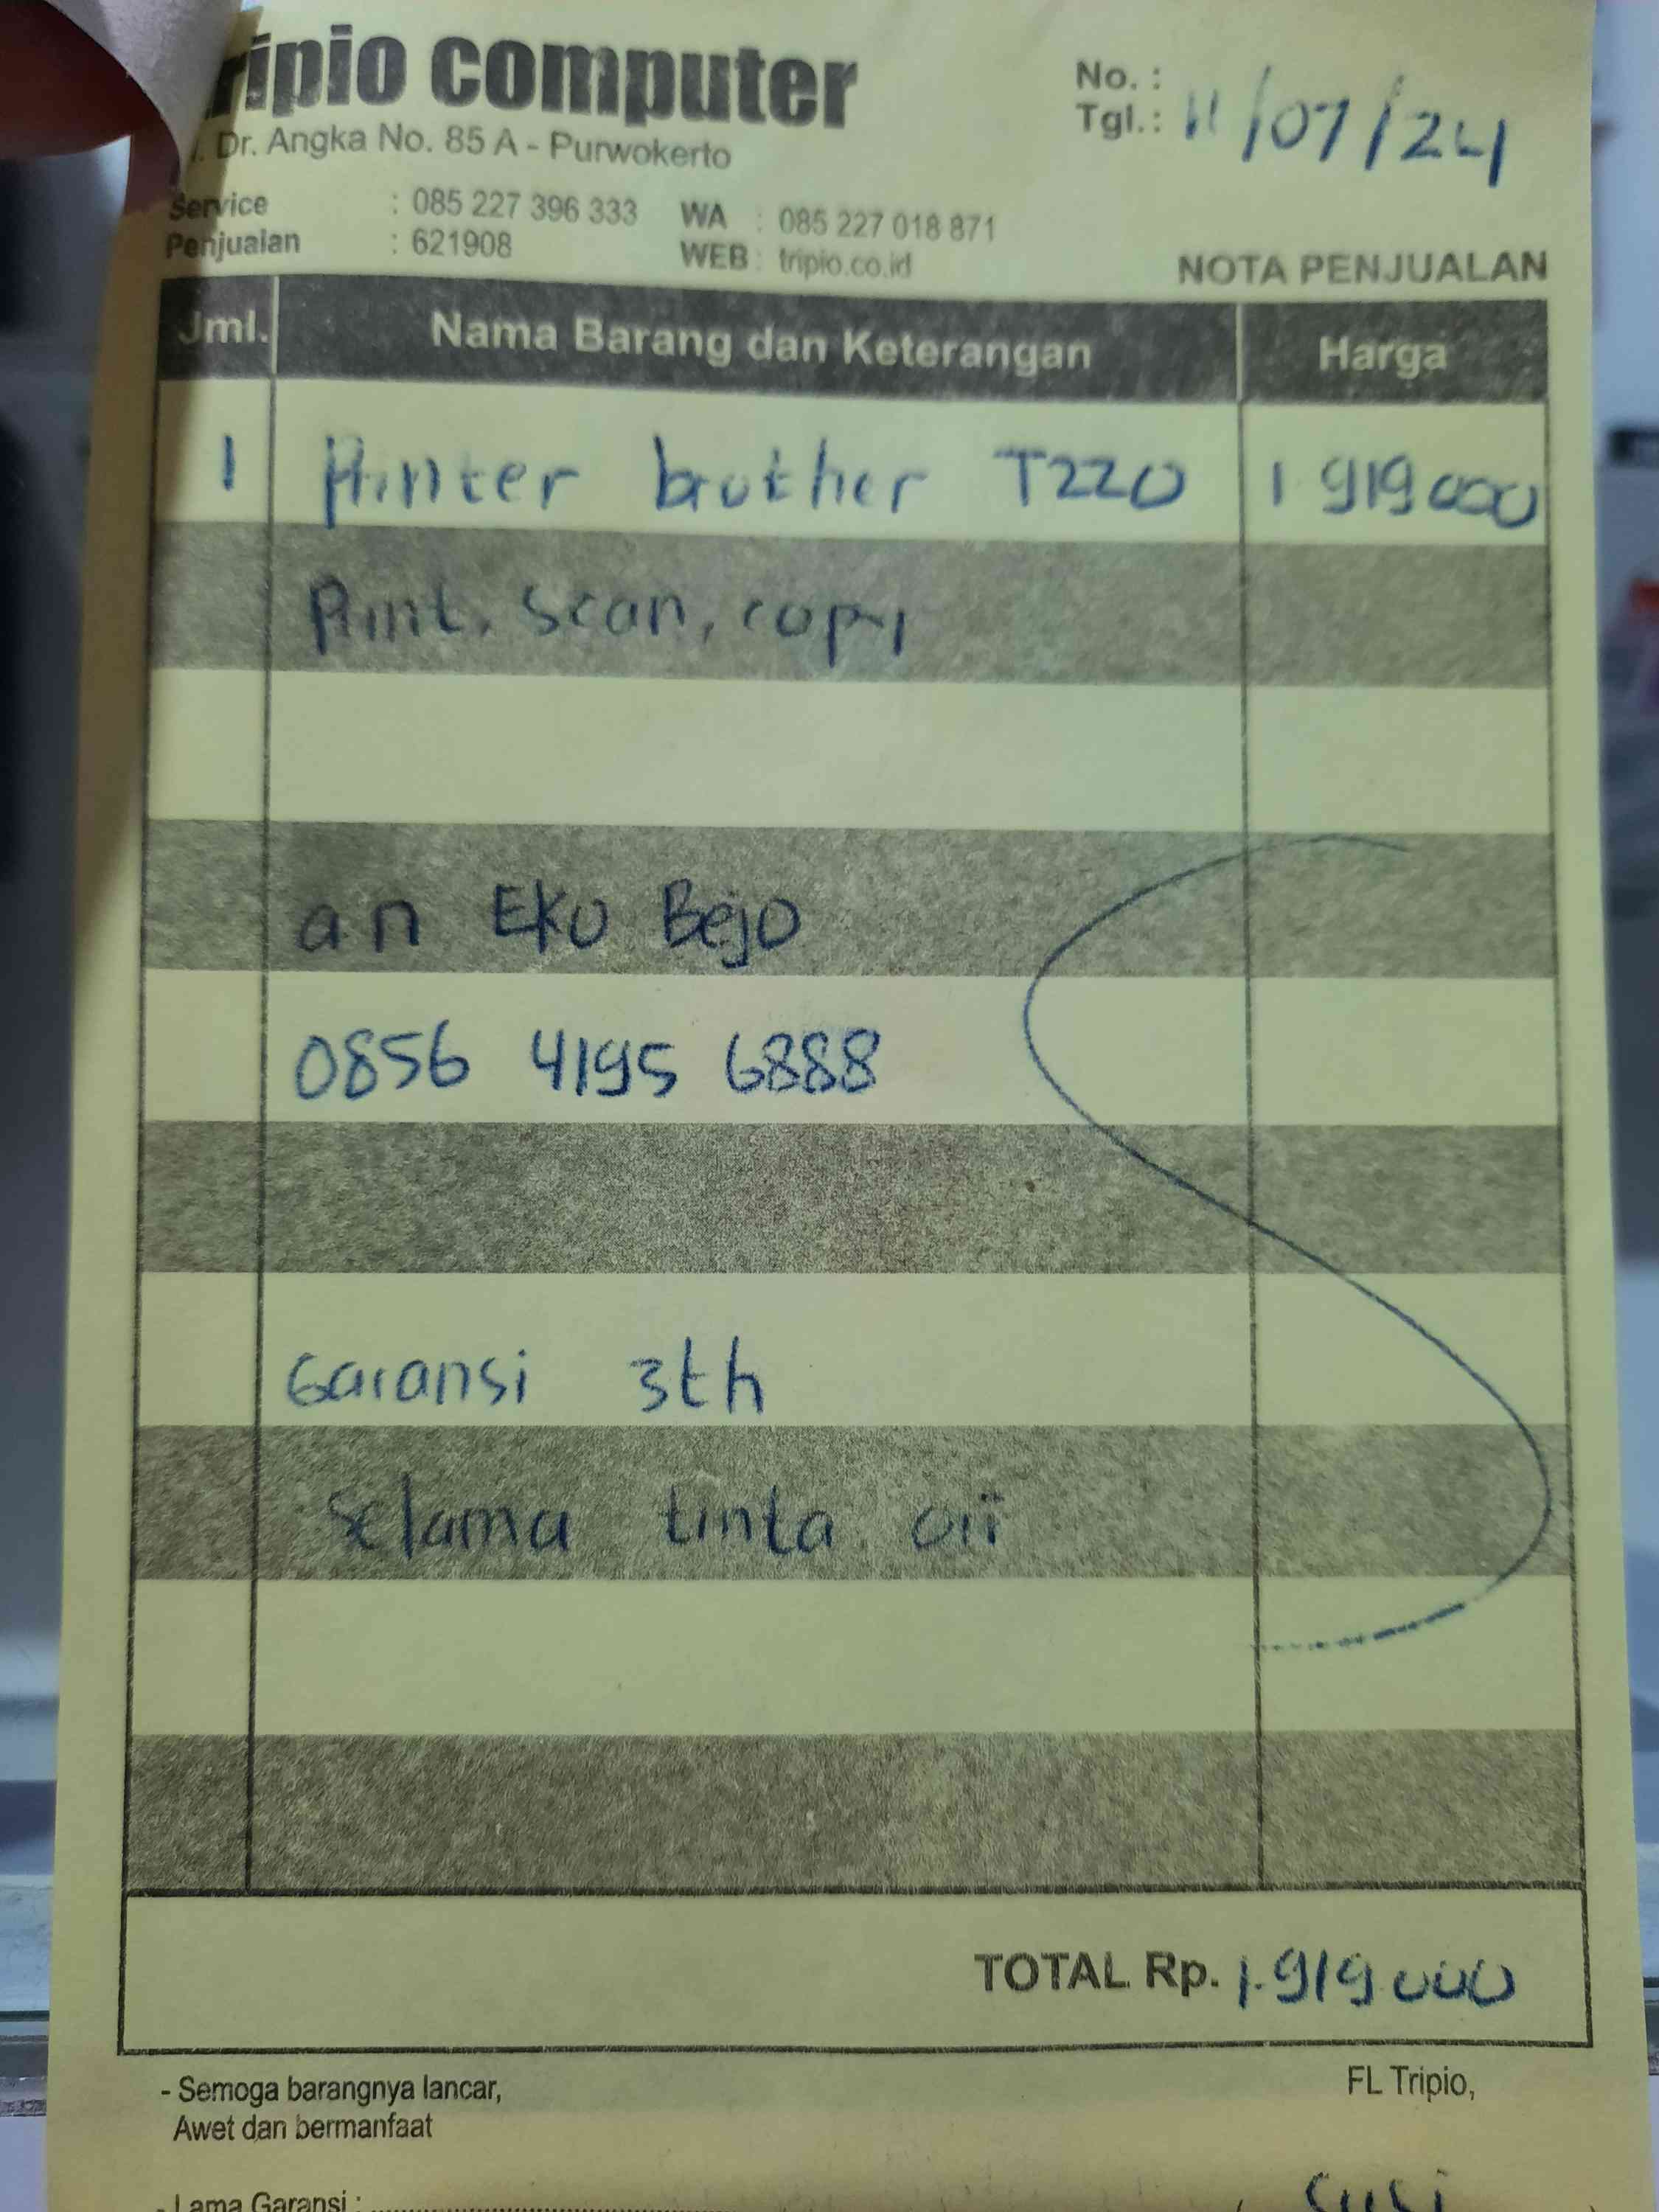 ripio computer
Dr. Angka No. 85 A - Purwokerto
No. :
Tgl. : 11/07/24
Service : 085 227 396 333 WA : 085 227 018 871
Penjualan : 621908 WEB : tripio.co.id
NOTA PENJUALAN
Jml. Nama Barang dan Keterangan Harga
1 Printer brother T220 1 919 000
Print, scan, copy
an Eko Bejo
0856 4195 6888
Garansi 3th
Selama tinta ori
TOTAL Rp. 1.919 000
- Semoga barangnya lancar,
Awet dan bermanfaat
FL Tripio,
- Lama Garansi :
Susi